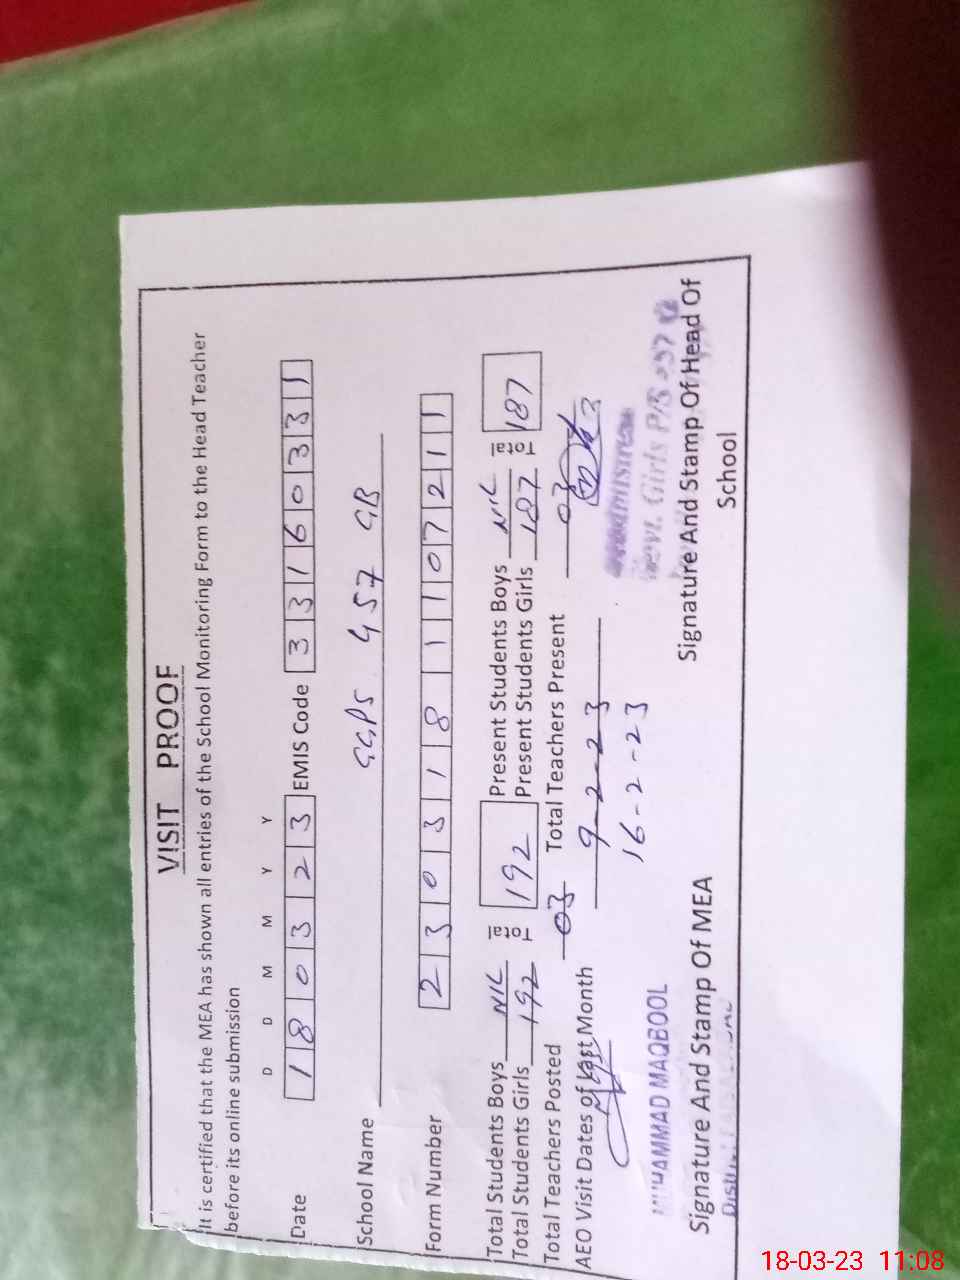 VISIT PROOF
It is certified that the MEA has shown all entries of the School Monitoring Form to the Head Teacher
before its online submission
D D M M Y Y
Date 1 8 0 3 2 3 EMIS Code 3 3 1 6 0 3 3 1
School Name GGPS 457 GB
Form Number 2 3 0 3 1 8 1 1 0 7 2 1 1
Total Students Boys NIL Total 192 Present Students Boys NIL Total 187
Total Students Girls 192 Present Students Girls 187
Total Teachers Posted 03 Total Teachers Present 03
AEO Visit Dates of Last Month 9-2-23
16-2-23
MUHAMMAD MAQBOOL
Govt. Girls P/S
Signature And Stamp Of MEA Signature And Stamp Of Head Of
School
18-03-23 11:08